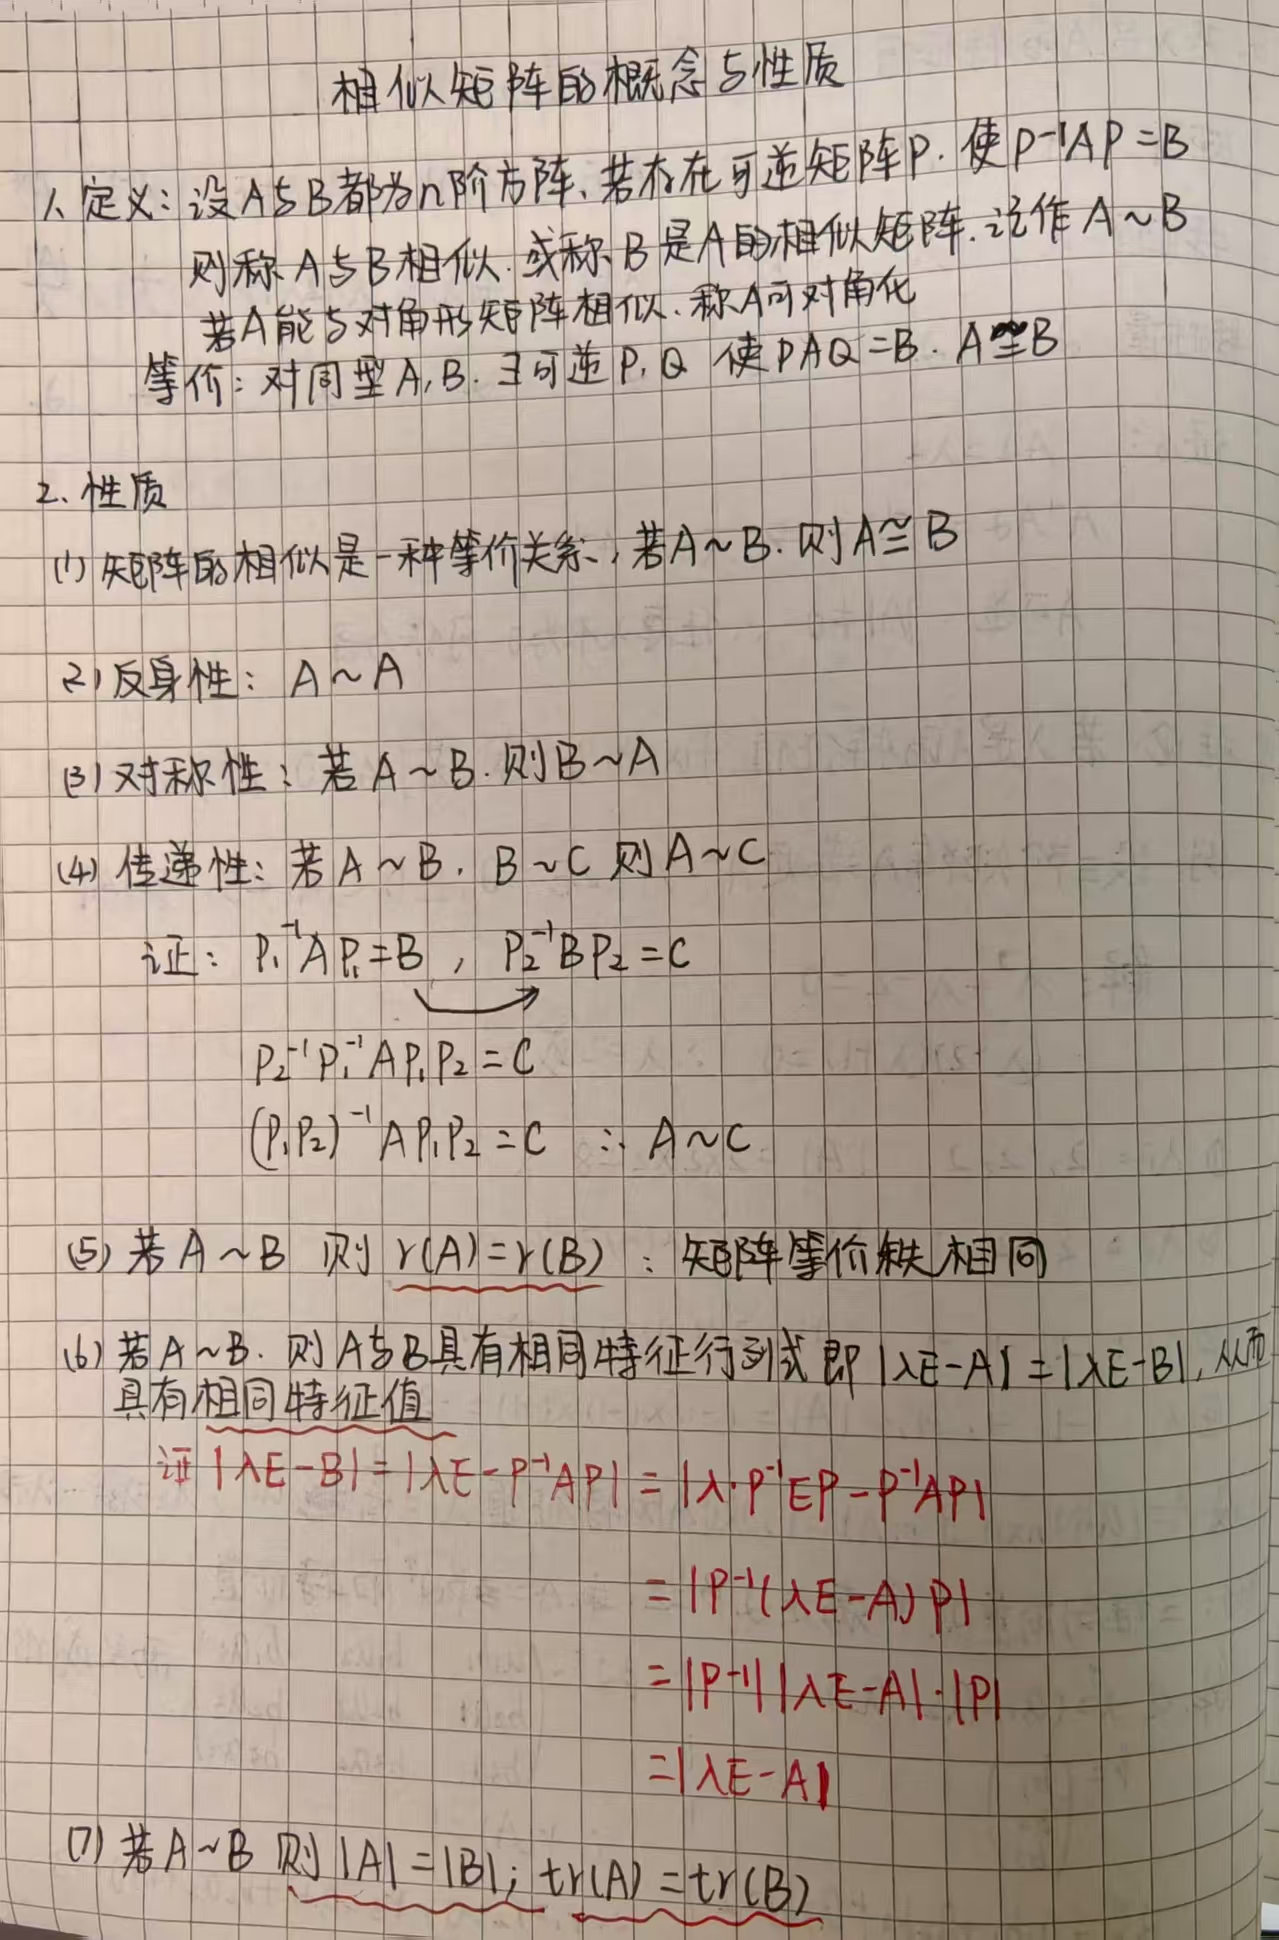 相似矩阵的概念与性质
1、定义：设A与B都为n阶方阵、若存在可逆矩阵P. 使P⁻¹AP=B
则称A与B相似. 或称B是A的相似矩阵. 记作A~B
若A能与对角形矩阵相似. 称A可对角化
等价：对同型A,B. ∃可逆P,Q 使PAQ=B. A≅B
2. 性质
(1) 矩阵的相似是一种等价关系, 若A~B. 则A≅B
(2) 反身性： A~A
(3) 对称性：若A~B. 则B~A
(4) 传递性：若A~B. B~C 则A~C
证： P₁⁻¹AP₁=B , P₂⁻¹BP₂=C
P₂⁻¹P₁⁻¹AP₁P₂=C
(P₁P₂)⁻¹AP₁P₂=C ∴ A~C
(5) 若A~B 则 r(A)=r(B) : 矩阵等价秩相同
(6) 若A~B. 则A与B具有相同特征行列式 即|λE-A|=|λE-B|, 从而
具有相同特征值
证|λE-B|=|λE-P⁻¹AP|=|λ·P⁻¹EP-P⁻¹AP|
=|P⁻¹(λE-A)P|
=|P⁻¹||λE-A|·|P|
=|λE-A|
(7) 若A~B 则|A|=|B|; tr(A)=tr(B)